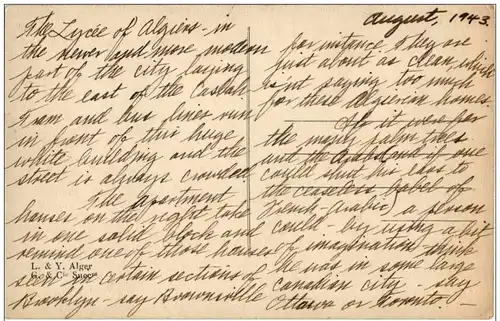 August, 1943.
The Lycée of Algiers - in
the newer and more modern
part of the city laying
to the east of the Casbah
Tram and bus lines run
in front of this huge
white building and the
street is always crowded.
The apartment
houses on the right take
in one solid block and
remind one of those houses
seen in certain sections of
Brooklyn - say Brownsville
for instance. They are
just about as clean which
isn't saying too much
for these Algerian homes.
If it were for
the many palm trees
and the Arabs and if one
could shut his ears to
the ceaseless babel of
French-Arabic, a person
could - by using a bit
of imagination think
he was in some large
Canadian city - say
Ottawa or Toronto. -
L. & Y. Alger